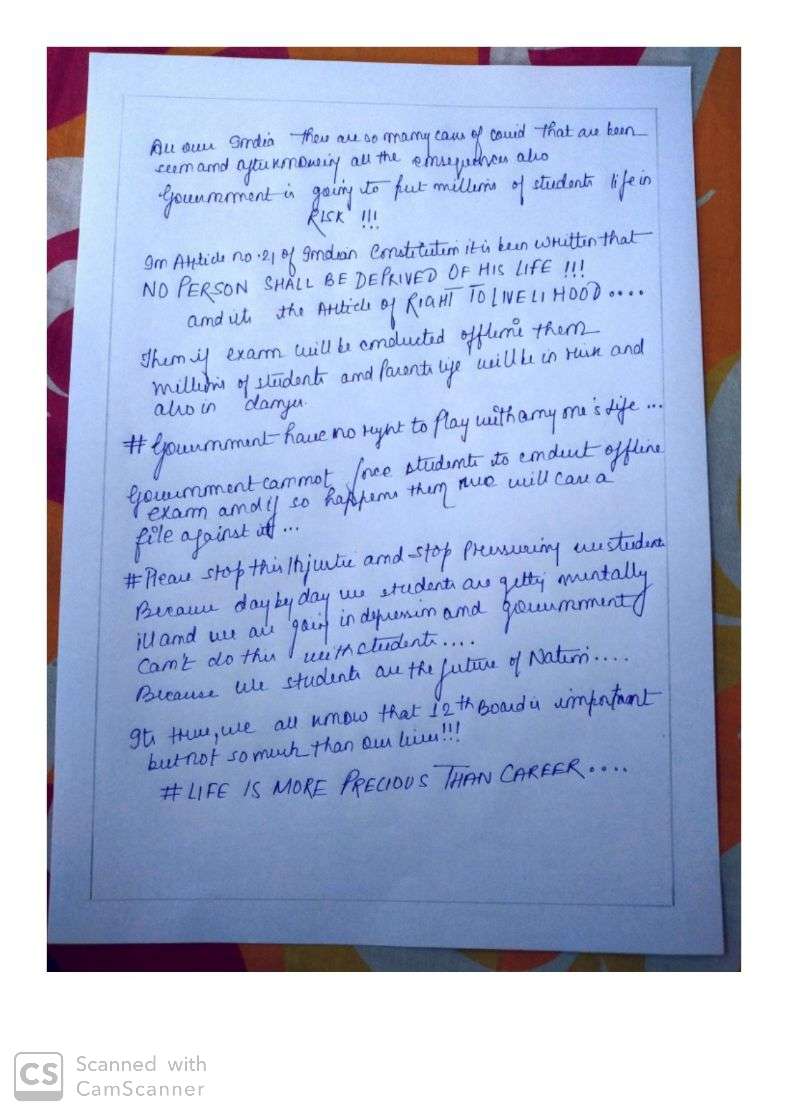 All over India there are so many cases of covid that are been
seen and after knowing all the consequences also
Government is going to put millions of students life in
RISK !!!
In Article no.21 of Indian Constitution it is been written that
NO PERSON SHALL BE DEPRIVED OF HIS LIFE !!!
and its the Article of RIGHT TO LIVELIHOOD ....
Then if exam will be conducted offline then
millions of students and Parents life will be in risk and
also in danger.
# Government have no right to Play with any one's life ...
Government cannot force students to conduct offline
exam and if so happens then we will case a
file against it ...
# Please stop this Injustice and stop Pressuring we students
Because day by day we students are getting mentally
ill and we are going in depression and government
Can't do this with students....
Because we students are the future of Nation....
Its true, we all know that 12th Board is important
but not so much than our lives!!!
# LIFE IS MORE PRECIOUS THAN CAREER....
CS Scanned with
CamScanner